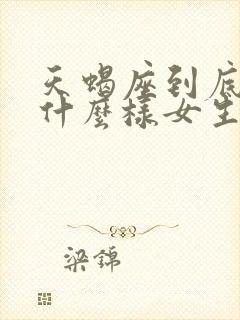 天蝎座到底
什麼樣女生
梁錦